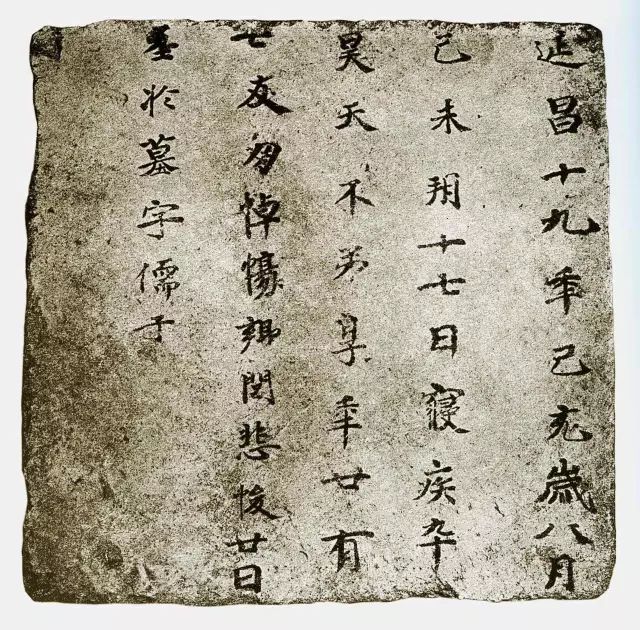 延昌十九年己亥歲八月
己未朔十七日寢疾卒
昊天不弔享年廿有
七友朋悼傷悲悛廿日
於墓字儒子